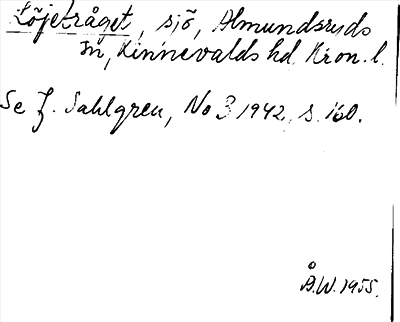 Löjetråget, sjö, Almundsryds
sn, Kinnevalds hd. Kron. l.
Se J. Sahlgren, No 3 1942, s. 160.
Å.W. 1955.